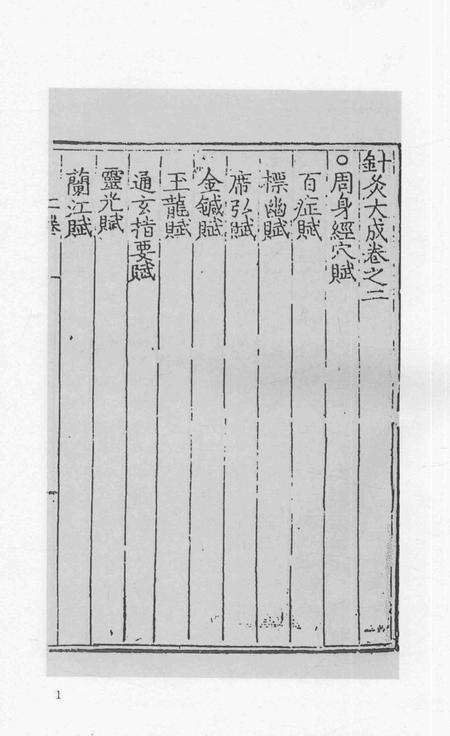 針灸大成卷之二
○周身經穴賦
百症賦
標幽賦
席弘賦
金鍼賦
玉龍賦
通玄指要賦
靈光賦
蘭江賦
二卷
1